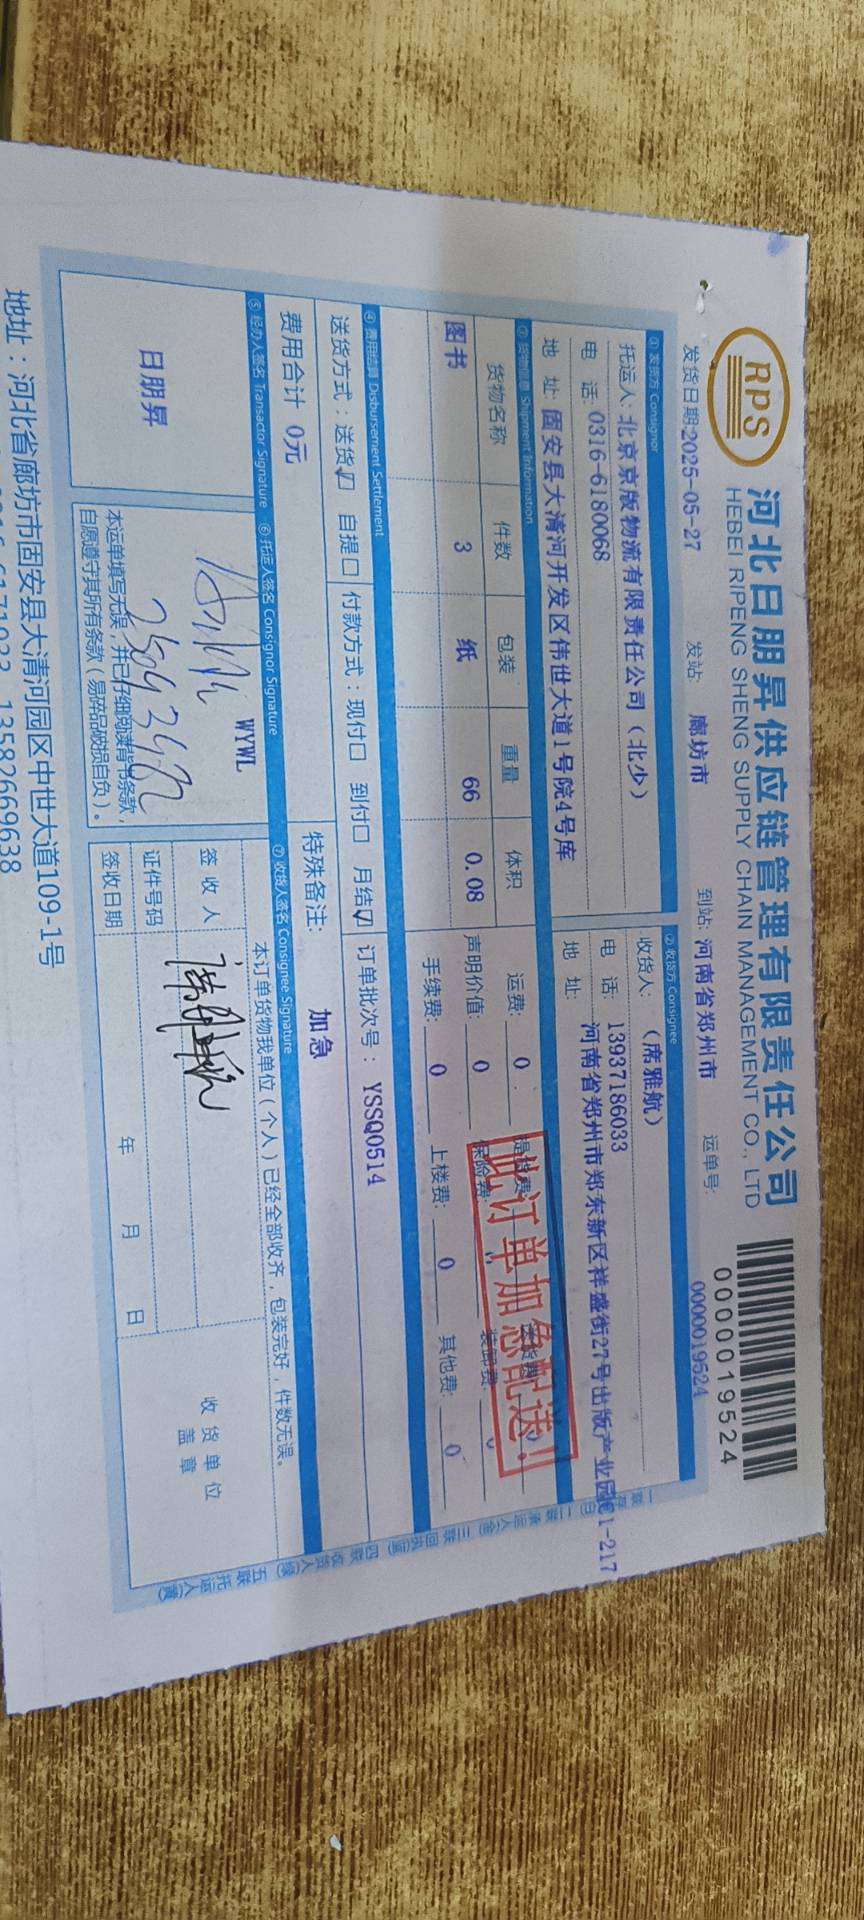 RPS
河北日朋昇供应链管理有限责任公司
HEBEI RIPENG SHENG SUPPLY CHAIN MANAGEMENT CO., LTD
0000019524
发货日期:2025-05-27 发站: 廊坊市 到站: 河南省郑州市 运单号: 0000019524
① 发货方 Consignor
托运人:北京京版物流有限责任公司（北少）
电 话: 0316-6180068
地 址: 固安县大清河开发区伟世大道1号院4号库
② 收货方 Consignee
收货人: （席雅航）
电 话: 13937186033
地 址: 河南省郑州市郑东新区祥盛街27号出版产业园C1-217
③ 货物信息 Shipment Information
货物名称 件数 包装 重量 体积
图书 3 纸 66 0.08
运费: 0 提货费: 送货费:
声明价值: 0 保险费: 装卸费: 0
手续费: 0 上楼费: 0 其他费: 0
此订单加急配送!
④ 费用结算 Disbursement Settlement
送货方式：送货☑ 自提☐ 付款方式：现付☐ 到付☐ 月结☑ 订单批次号： YSSQ0514
费用合计 0元 特殊备注: 加急
⑤ 经办人签名 Transactor Signature
日朋昇
⑥ 托运人签名 Consignor Signature
WYWL
本运单填写无误，并已仔细阅读背书条款，
自愿遵守其所有条款（易碎品破损自负）。
⑦ 收货人签名 Consignee Signature
本订单货物我单位（个人）已经全部收齐，包装完好，件数无误。
签收人
证件号码
签收日期 年 月 日
收货单位
盖章
地址：河北省廊坊市固安县大清河园区中世大道109-1号
13582669638